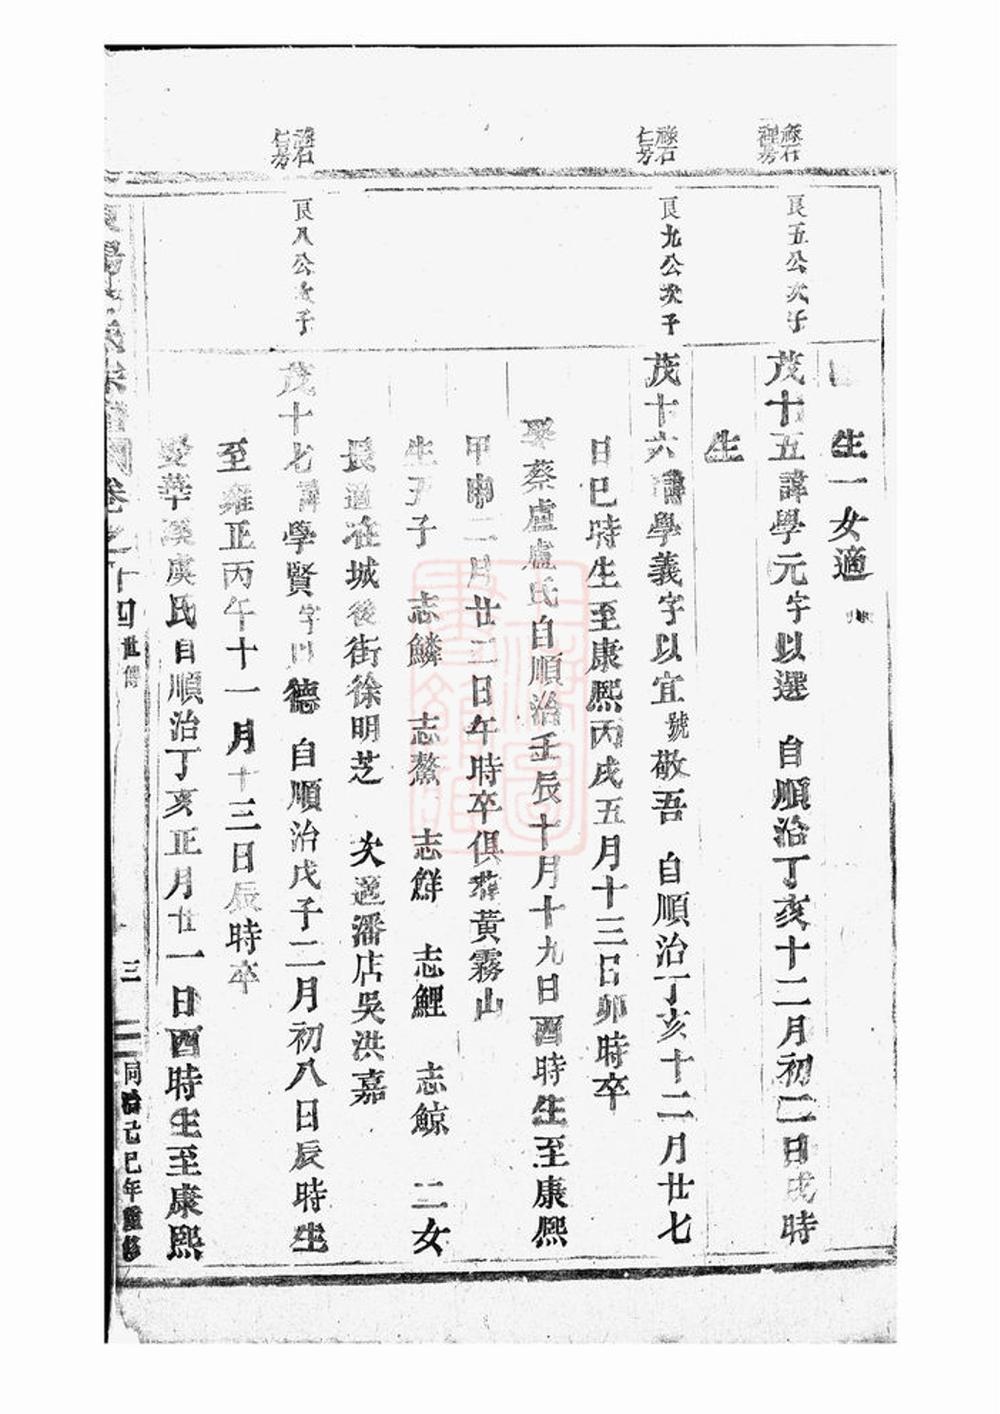 生一女適
良五公次子
茂十五諱學元字以選 自順治丁亥十二月初二日戌時
生
仁房
良九公次子
茂十六諱學義字以宜號敬吾 自順治丁亥十二月廿七
日巳時生至康熙丙戌五月十三日卯時卒
娶蔡盧盧氏自順治壬辰十月十九日酉時生至康熙
甲申二月廿三日午時卒俱葬黃霧山
生五子 志鱗 志鰲 志鮮 志鯉 志鯨 二女
長適在城後街徐明芝 次適潘店吳洪嘉
仁房
良八公次子
茂十七諱學賢字以德 自順治戊子二月初八日辰時生
至雍正丙午十一月十三日辰時卒
娶華溪虞氏自順治丁亥正月廿一日酉時生至康熙
卷之十四 世傳 三 同治己巳年重修